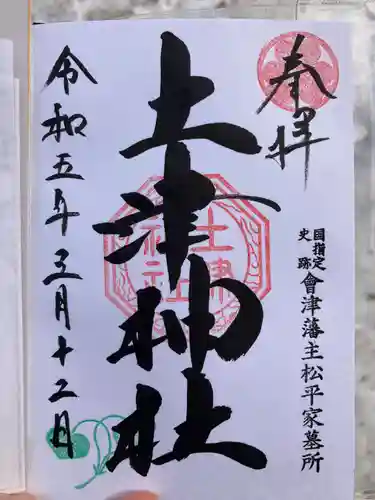 奉拝
国指定
史跡
會津藩主松平家墓所
土津神社
土津
神社
令和五年三月十二日